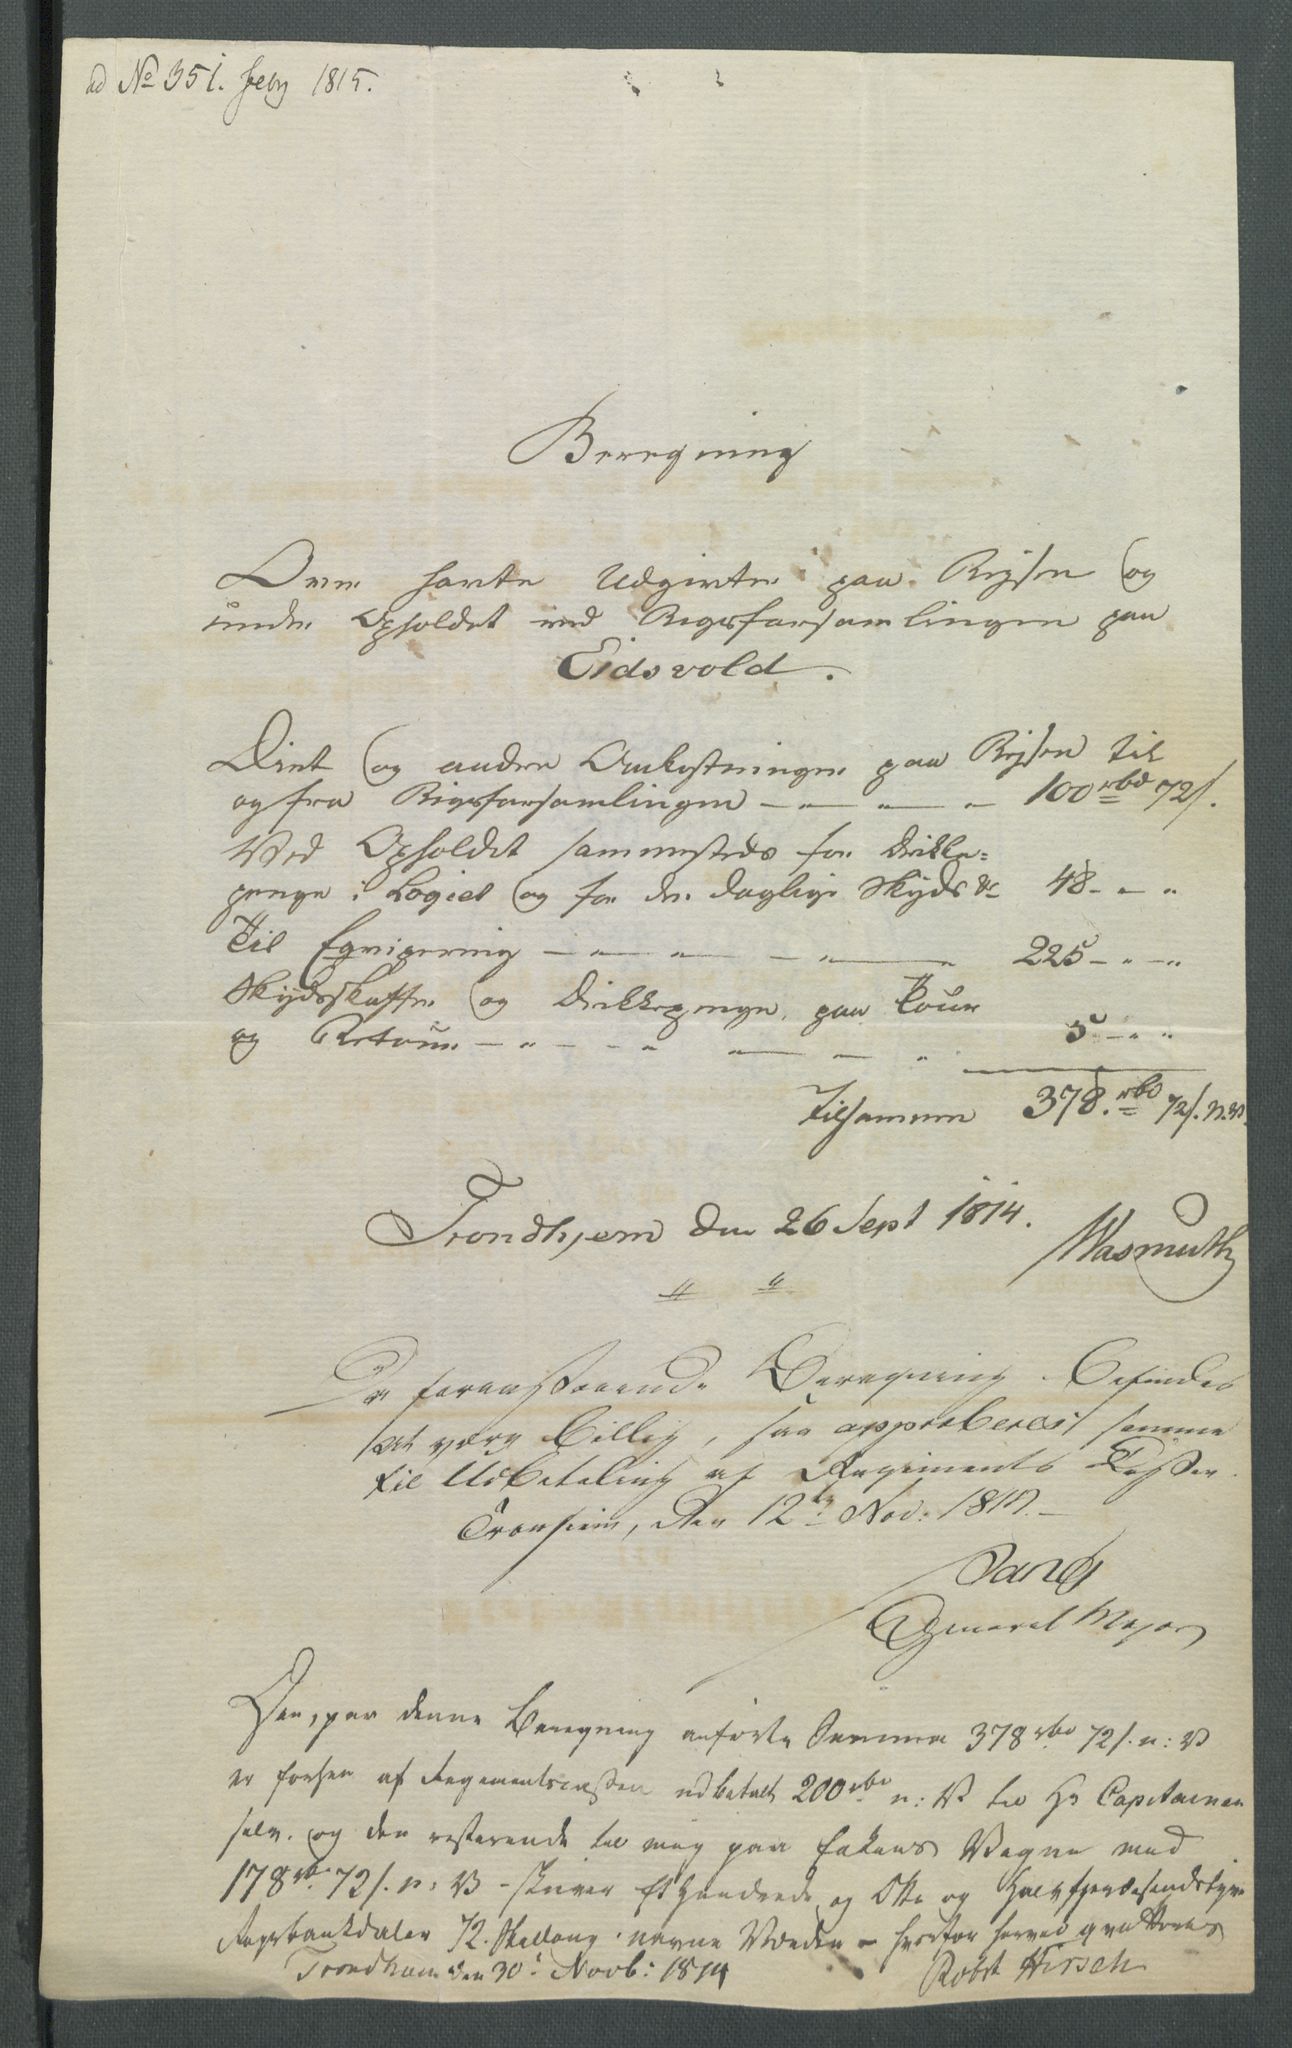 ad No 351. Feby 1815.
Beregning
Over havte Udgivter paa Reysen og
under Opholdet ved Rigsforsamlingen paa
Eidsvold.
Diet og andre Omkostninger paa Reysen til
og fra Rigsforsamlingen — „ — „ — 100 rbd 72 s.
Ved Opholdet sammesteds for Drikke=
penge i Logiet og for den daglige Skyds &c 48 - „ - „
Til Eqvipering — „ — „ — „ — 225 - „ - „
Skydsskaffer og Drikkepenge, paa Tour
og Retour — „ — „ — „ — „ 5 - „ - „
Tilsammen 378. rbd 72 s. N.V.
Trondhjem den 26 Sept 1814. Wasmuth
Da foranstaaende Beregning befindes
at være billig, saa approberes samme
til Udbetaling af Regiments Cassen.
Tronhiem, den 12te Nov: 1814.
General Major
Den, paa denne Beregning anførte Summa 378 rbd 72 s. n: V
er forhen af Regimentscassen udbetalt 200 rbd n: V til Hr Capitainen
selv. og den resterende til mig paa hans Vegne med
178 rbd 72 s. n: V - skriver Et Hundrede og Otte og Halvfjerdesindstyve
Rigsbankdaler 72. Skilling navne Værdie - hvorfor herved qvitteres
Trondhiem den 30t Novb: 1814 Robt Hirsch